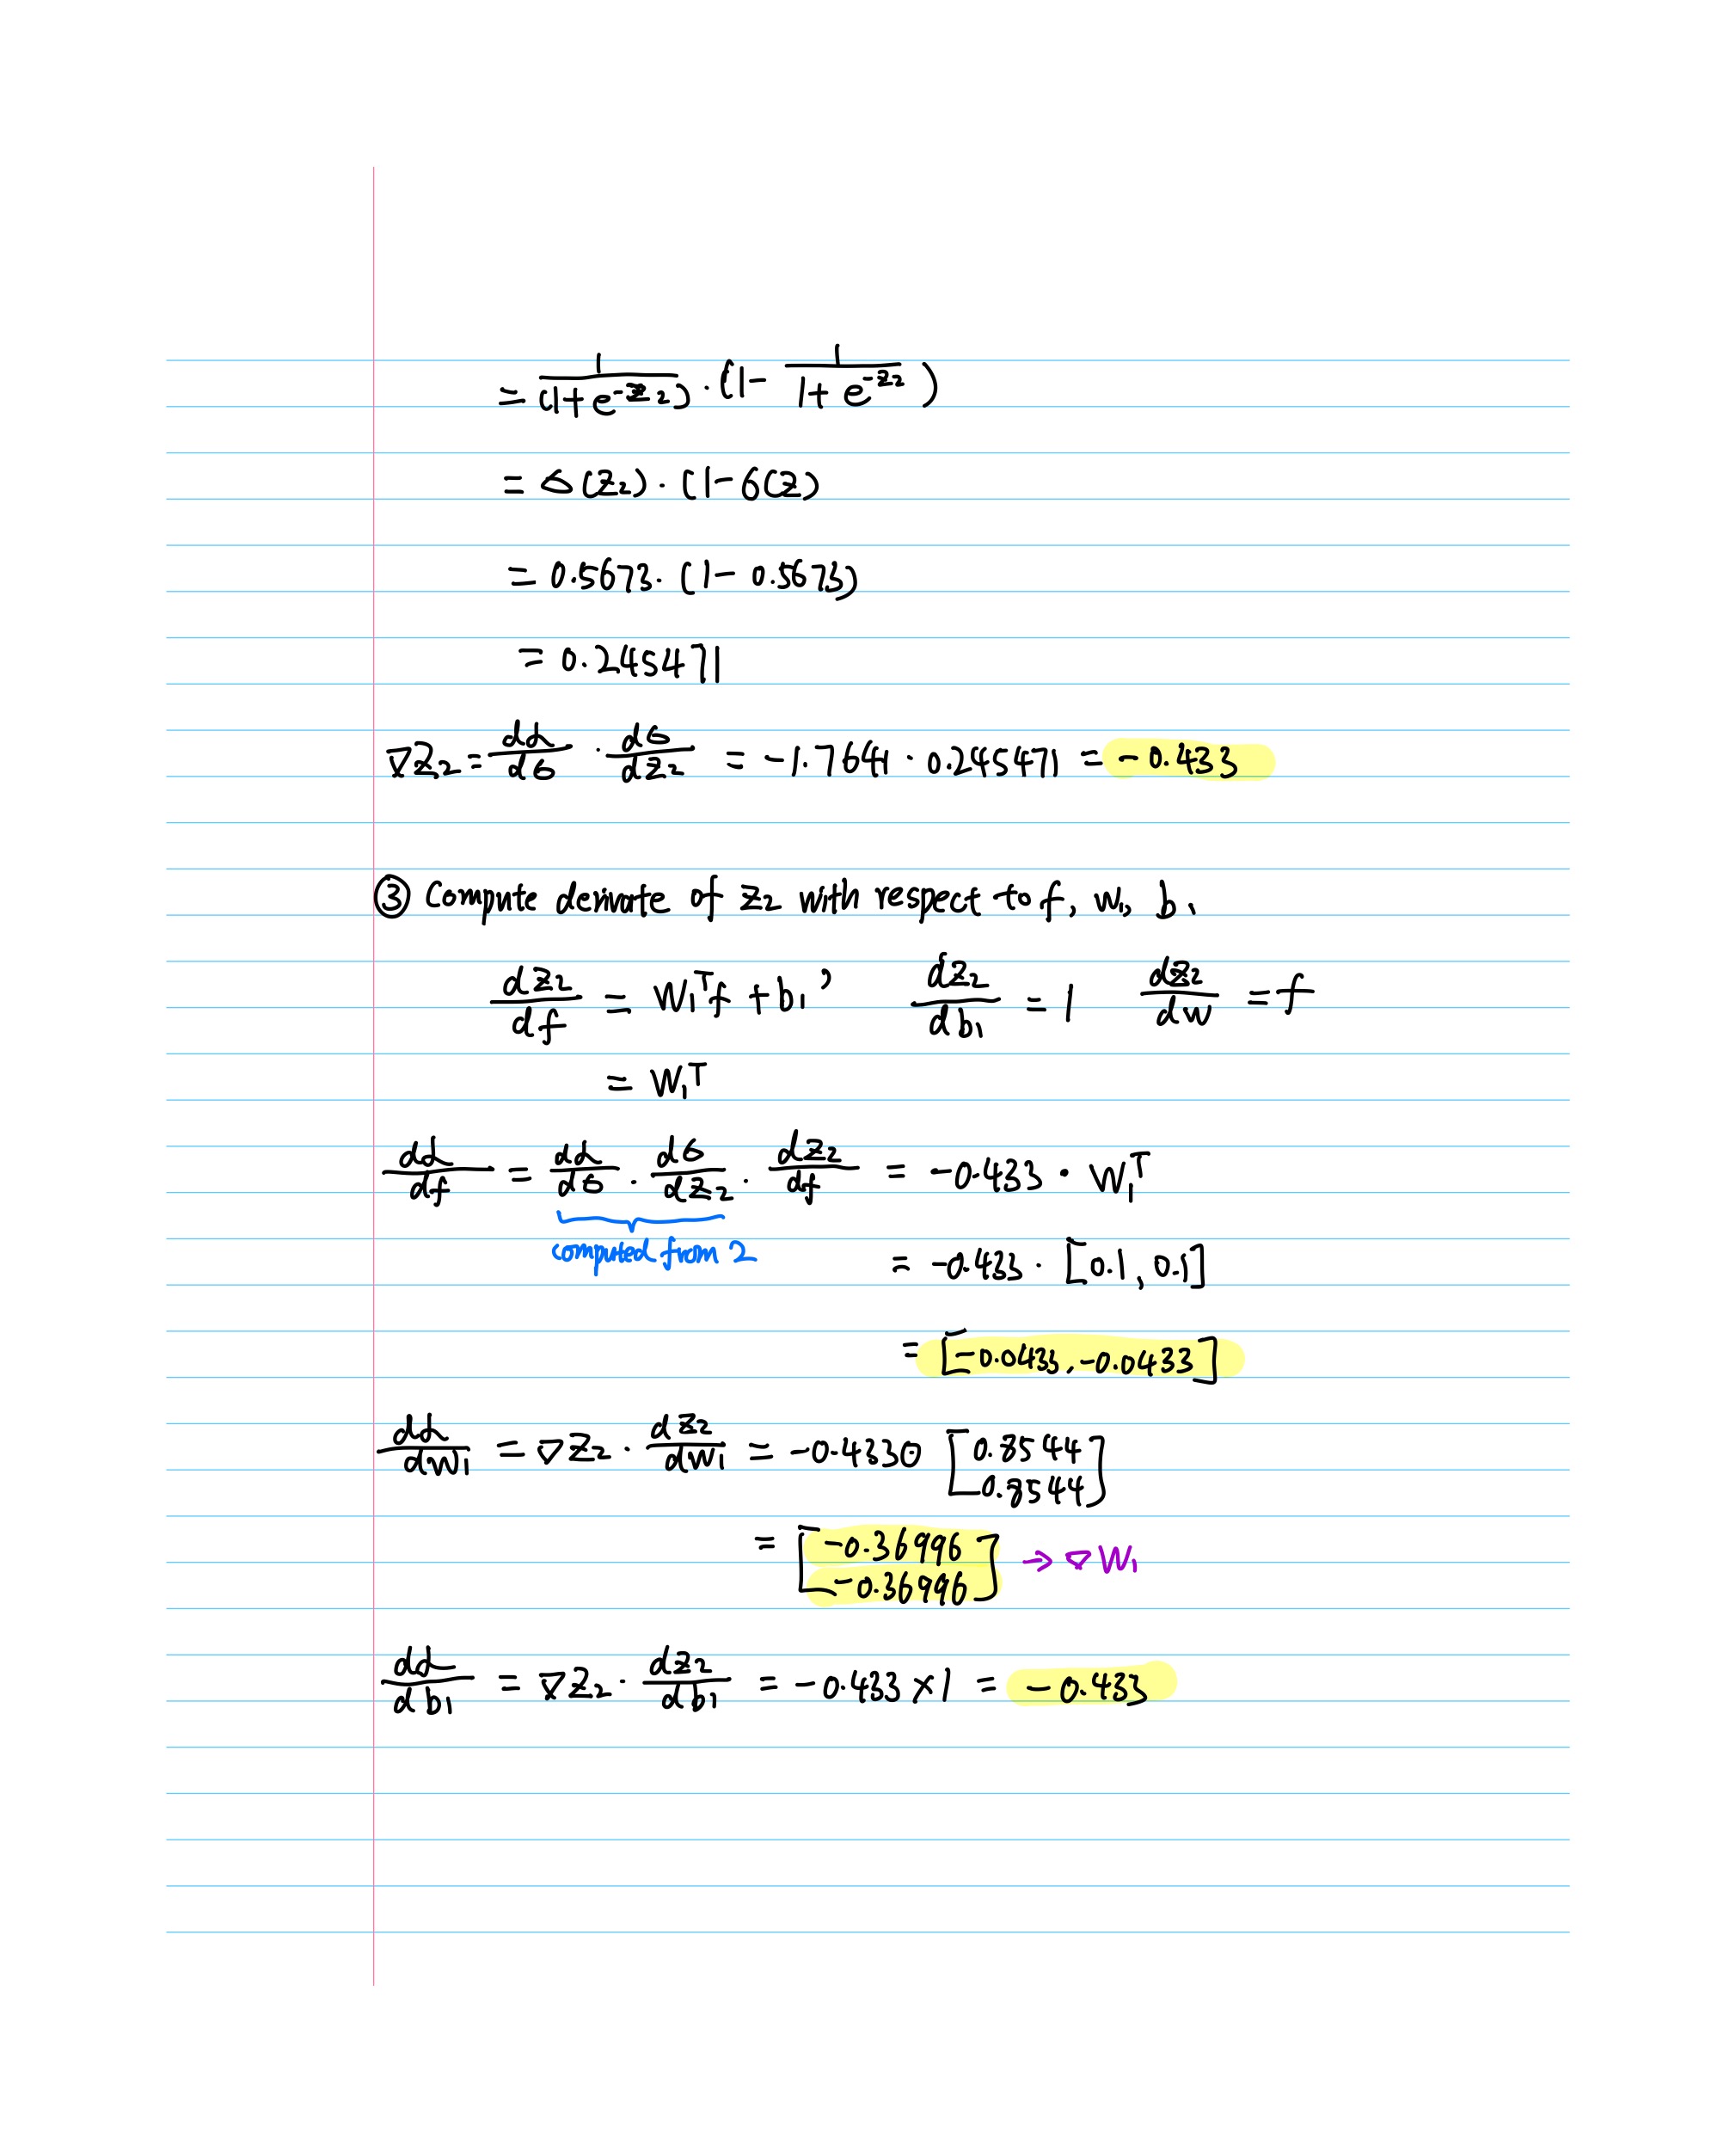 = 1/(1+e^{-z₂}) · (1 - 1/(1+e^{-z₂}))
= σ(z₂) · (1-σ(z)
= 0.5673 · (1 - 0.5673)
= 0.245471
∇z₂ = dL/dσ · dσ/dz₂ = -1.7641 · 0.245471 = -0.433
③ Compute derivate of z₂ with respect to f, w₁, b₁
dz₂/df = W₁ᵀf + b₁' dz₂/db₁ = 1 dz₂/dw = f
= W₁ᵀ
dL/df = dL/dσ · dσ/dz₂ · dz₂/df = -0.433 · W₁ᵀ
computed from 2
= -0.433 · [0.1, 0.1]
= [-0.0433, -0.0433]
dL/dW₁ = ∇z₂ · dz₂/dW₁ = -0.4330 [0.8544
0.8544]
= [-0.36996
-0.36996] → ∇W₁
dL/db₁ = ∇z₂ · dz₂/db₁ = -0.433 × 1 = -0.433